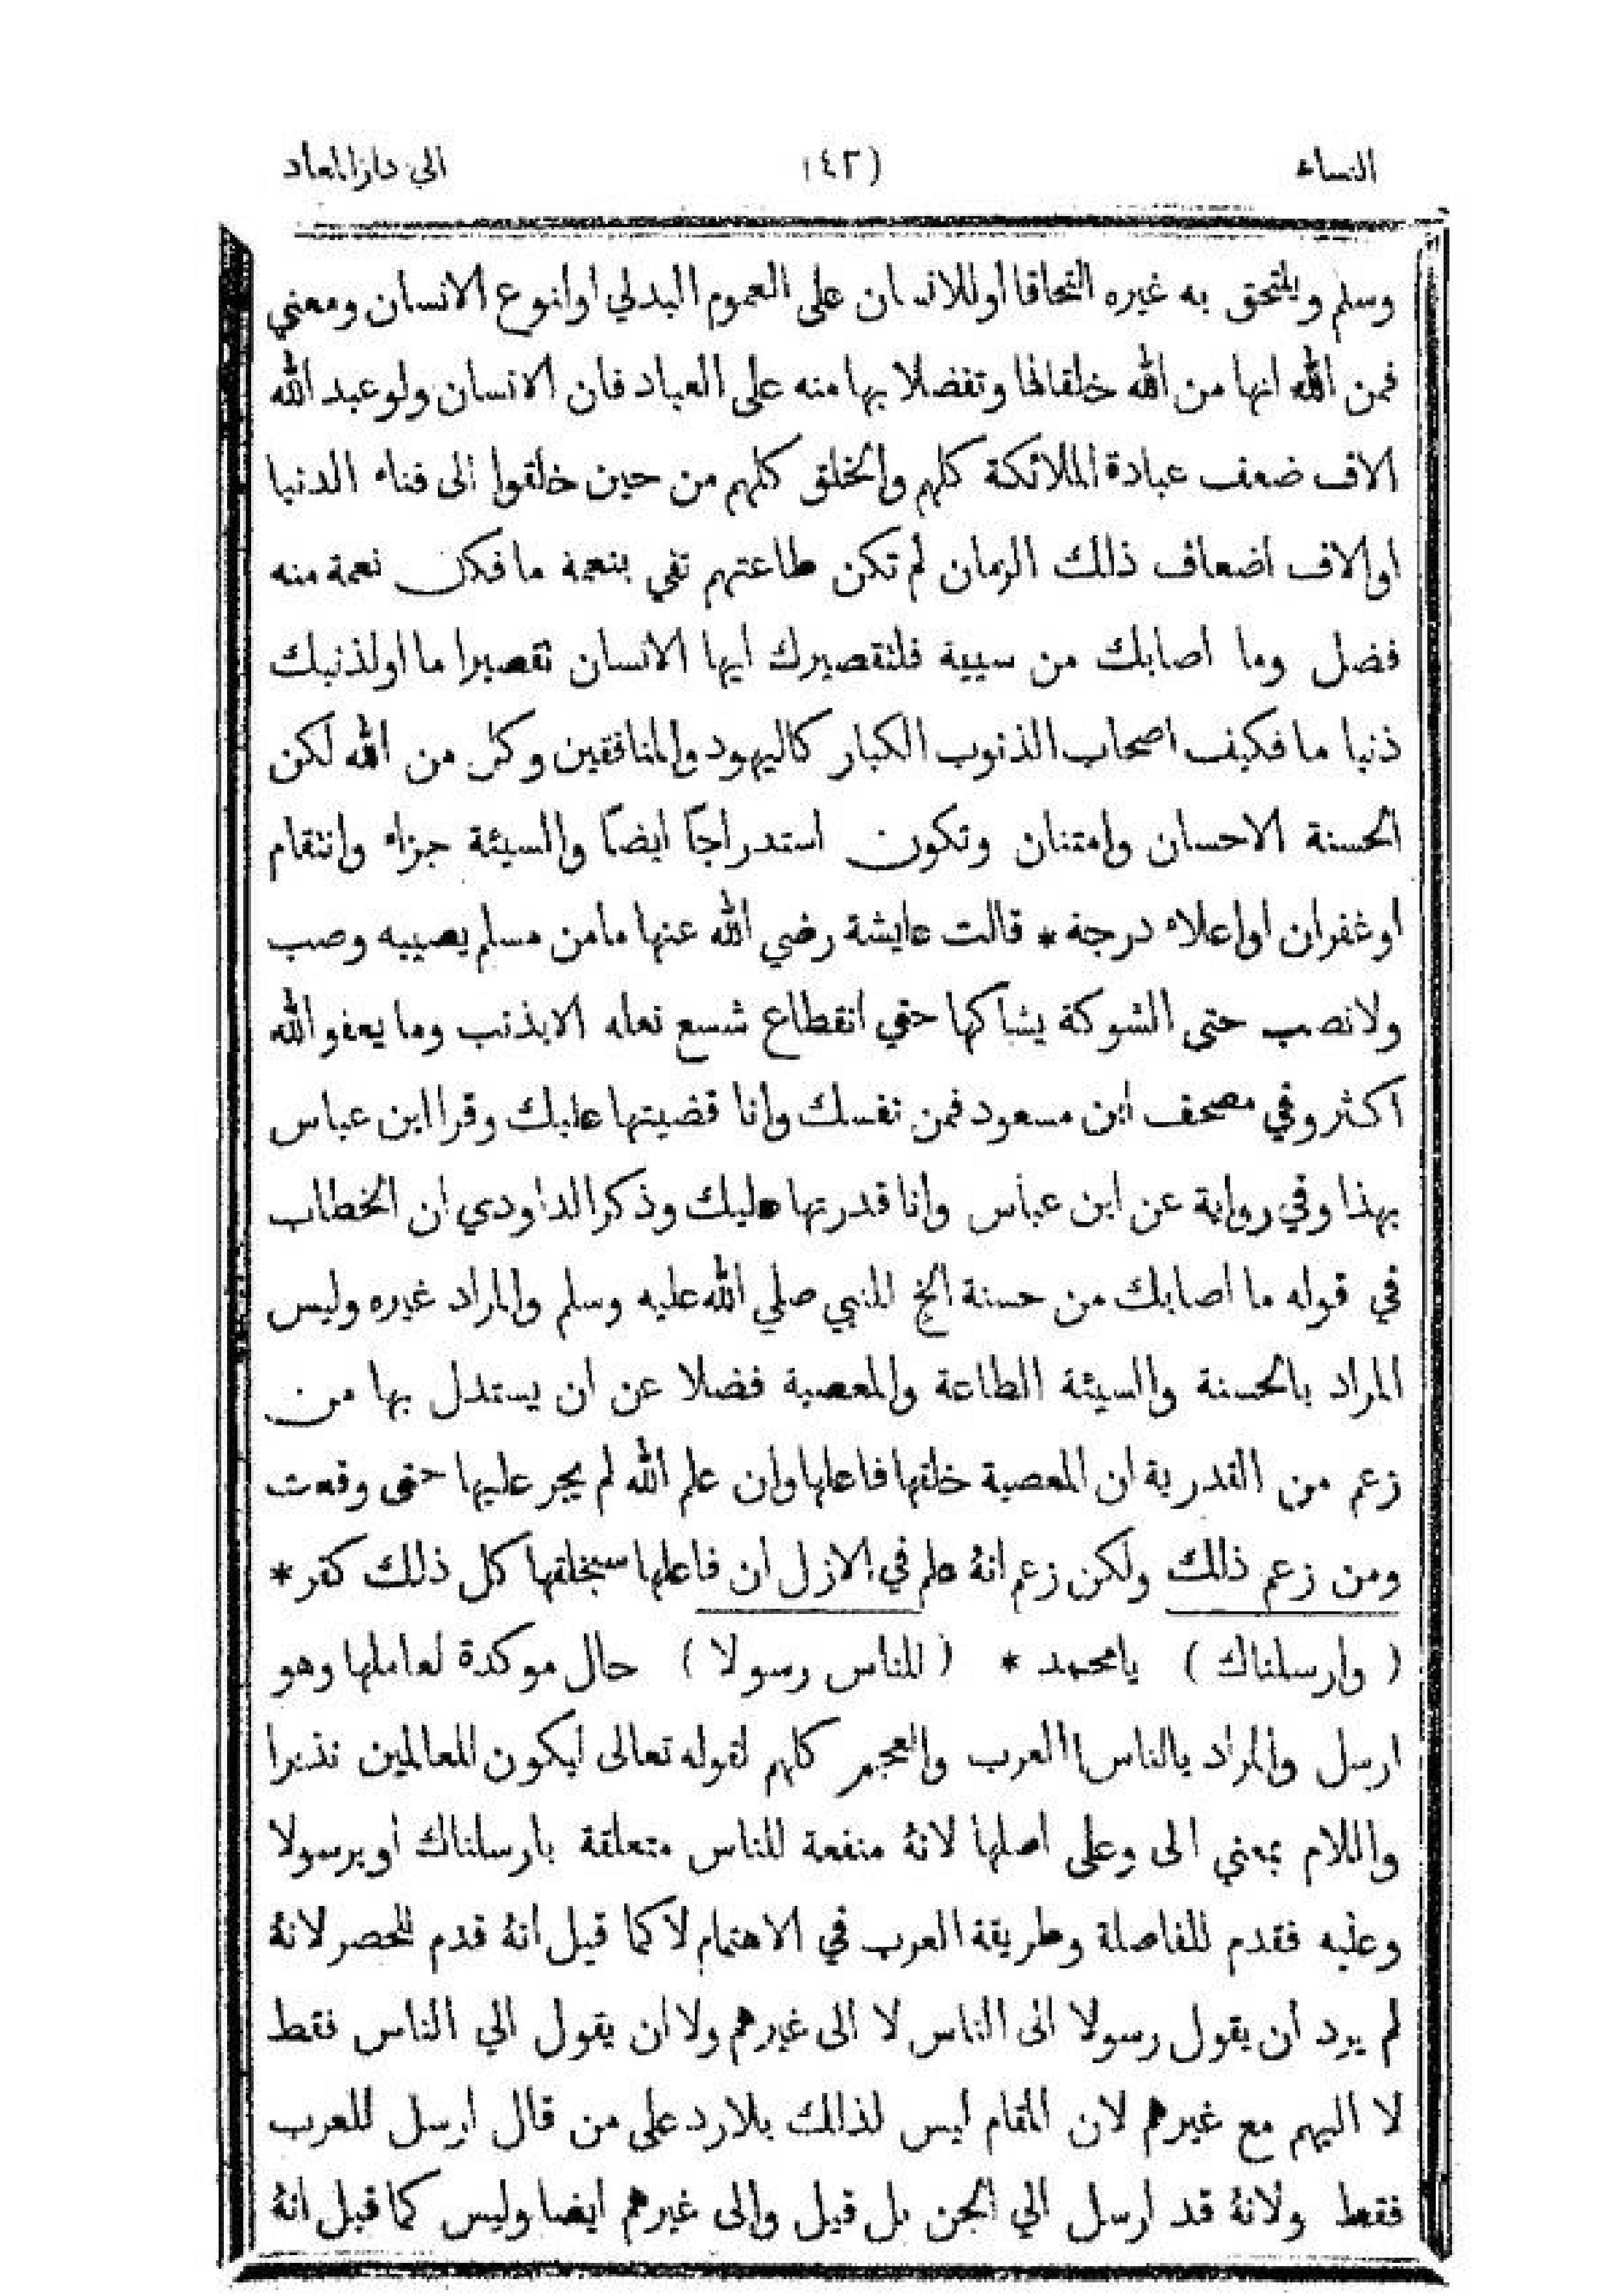 النساء (٤٢) الي دار المعاد
وسلم ويلتحق به غيره التحاقا او للانسان على العموم البدلي او لنوع الانسان ومعني
فمن الله انها من الله خلقا لها وتفضلا بها منه على العباد فان الانسان ولو عبد الله
الاف ضعف عبادة الملائكة كلهم والخلق كلهم من حين خلقوا الى فناء الدنيا
او الاف اضعاف ذلك الزمان لم تكن طاعتهم تفي بنعمة ما فكل نعمة منه
فضل وما اصابك من سيية فلتقصيرك ايها الانسان تقصيرا ما او لذنبك
ذنبا ما فكيف اصحاب الذنوب الكبار كاليهود والمنافقين وكل من الله لكن
الحسنة الاحسان وامتنان وتكون استدراجًا ايضًا والسيئة جزاء وانتقام
او غفران او اعلاء درجة * قالت عايشة رضي الله عنها ما من مسلم يصيبه وصب
ولا نصب حتى الشوكة يشاكها حتي انقطاع شسع نعله الا بذنب وما يعفو الله
اكثر وفي مصحف ابن مسعود فمن نفسك وانا قضيتها عليك وقرا ابن عباس
بهذا وفي رواية عن ابن عباس وانا قدرتها عليك وذكر الداودي ان الخطاب
في قوله ما اصابك من حسنة الخ للنبي صلي الله عليه وسلم والمراد غيره وليس
المراد بالحسنة والسيئة الطاعة والمعصية فضلا عن ان يستدل بها من
زعم من القدرية ان المعصية خلقها فاعلها وان علم الله لم يجر عليها حتى وقعت
ومن زعم ذلك ولكن زعم انهُ علم في الازل ان فاعلها سيخلقها كل ذلك كفر *
( وارسلناك ) يا محمد * ( للناس رسولا ) حال موكدة لعاملها وهو
ارسل والمراد بالناس العرب والعجم كلهم لقوله تعالى ليكون للعالمين نذيرا
واللام بمعني الى وعلى اصلها لانهُ منفعة للناس متعلقة بارسلناك او برسولا
وعليه فقدم للفاصلة وطريقة العرب في الاهتمام لا كما قيل انهُ قدم للحصر لانهُ
لم يرد ان يقول رسولا الى الناس لا الى غيرهم ولا ان يقول الي الناس فقط
لا اليهم مع غيرهم لان المقام ليس لذلك بلا رد على من قال ارسل للعرب
فقط ولانهُ قد ارسل الي الجن بل قيل والى غيرهم ايضا وليس كما قيل انهُ